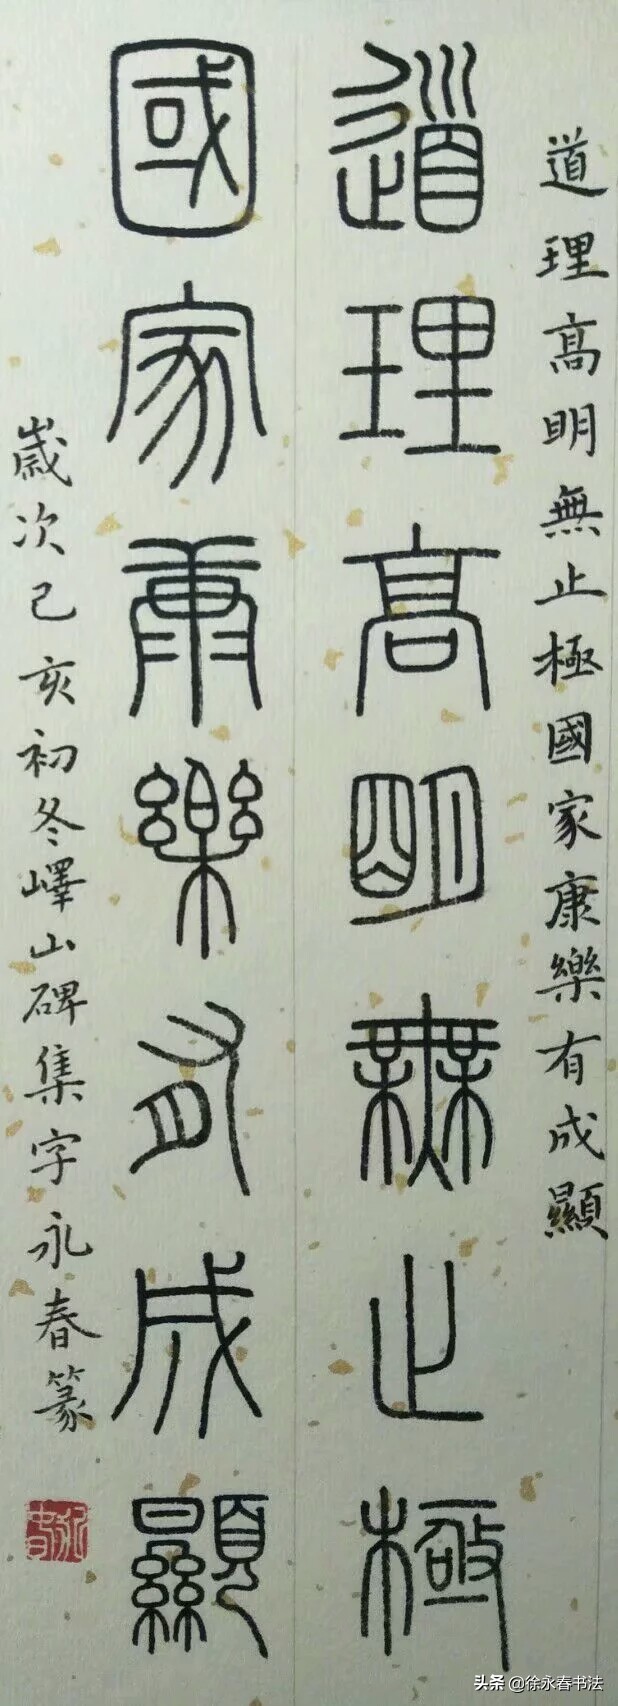 道理高明無止極國家康樂有成顯
道理高明無止極
國家康樂有成顯
歲次己亥初冬嶧山碑集字永春篆
头条 @徐永春书法